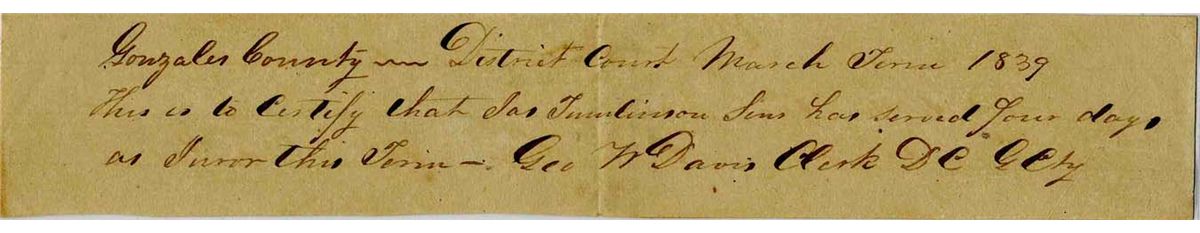 Gonzales County — District Court March Term 1839
This is to Certify that Jas Tumlinson Senr has served four days
as Juror this Term — Geo W Davis Clerk D C G Cty